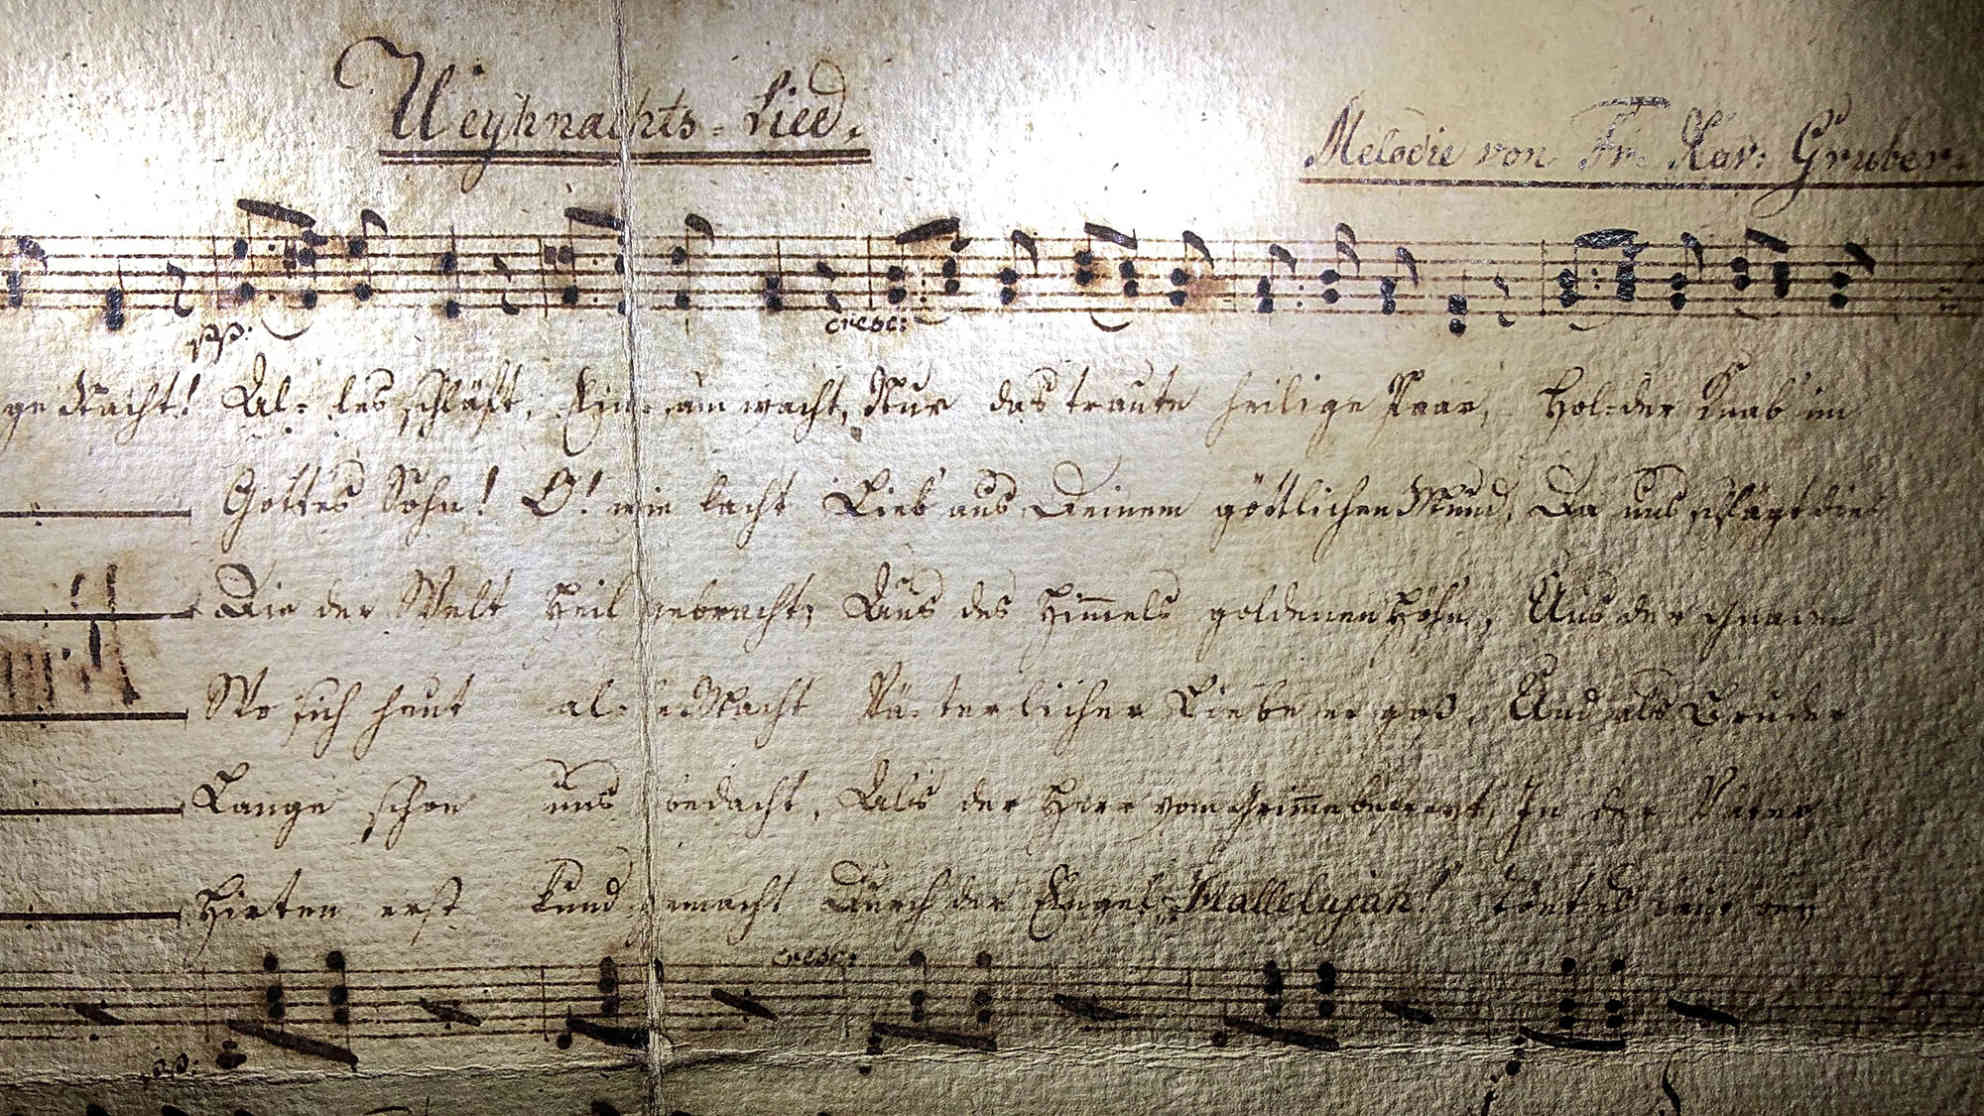 Weyhnachts-Lied.
Melodie von Fr. Xav: Gruber.
pp: cresc:
ge Nacht! Al- les schläft, Ein- sam wacht, Nur das traute heilige Paar, Hol-der Knab im
Gottes Sohn! O! wie lacht Lieb' aus Deinem göttlichen Mund, Da uns schlägt die
Die der Welt Heil gebracht; Aus des Him̅els goldenen Höhn, Aus der Gnaden
Wo sich heut al- le Macht Vä-terlicher Liebe ergoß, Und als Bruder
Lange schon uns bedacht, Als der Herr vom Grim̅e befreyt, In der Väter
Hirten erst kund gemacht Durch der Engel Hallelujah! tönt es laut bey
cresc:
pp: